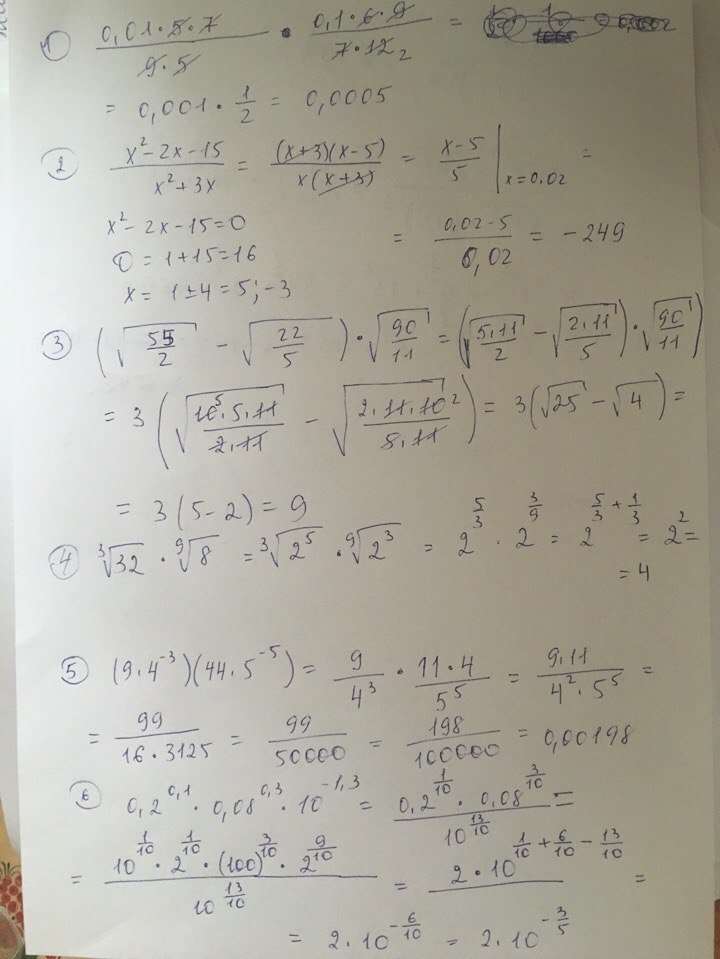 ① (0,01·8·7)/(9·5) · (0,1·6·9)/(7·12₂) =
= 0,001 · 1/2 = 0,0005
② (x²-2x-15)/(x²+3x) = ((x+3)(x-5))/(x(x+3)) = (x-5)/5 |x=0,02 =
x²-2x-15=0
D = 1+15=16
x = 1±4 = 5; -3
= (0,02-5)/(0,02) = -249
③ (√(55/2) - √(22/5)) · √(90/11) = (√(5.11/2) - √(2.11/5)) · √(90/11)
= 3 (√(10⁵.5.11/2.11) - √(2.11.10²/5.11)) = 3(√25 - √4) =
= 3(5-2) = 9
④ ³√32 · ⁹√8 = ³√2⁵ · ⁹√2³ = 2^(5/3) · 2^(3/9) = 2^(5/3+1/3) = 2² =
= 4
⑤ (9·4⁻³)(44·5⁻⁵) = 9/4³ · (11·4)/5⁵ = (9.11)/(4²·5⁵) =
= 99/(16·3125) = 99/50000 = 198/100000 = 0,00198
⑥ 0,2^0,1 · 0,08^0,3 · 10^-1,3 = (0,2^(1/10) · 0,08^(3/10))/10^(13/10) =
= (10^(1/10) · 2^(1/10) · (100)^(3/10) · 2^(9/10))/10^(13/10) = 2·10^(1/10+6/10-13/10) =
= 2·10^(-6/10) = 2·10^(-3/5)